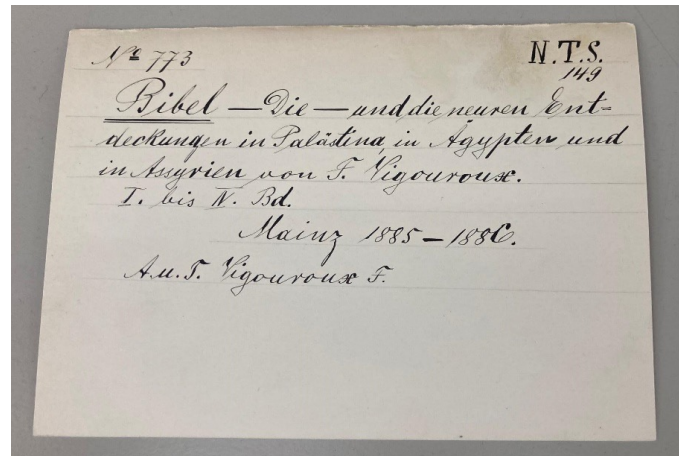 No 773
N.T.S.
149
Bibel — Die — und die neuren Ent=
deckungen in Palästina, in Ägypten und
in Assyrien von F. Vigouroux.
I. bis IV. Bd.
Mainz 1885 – 1886.
A.u.T. Vigouroux F.